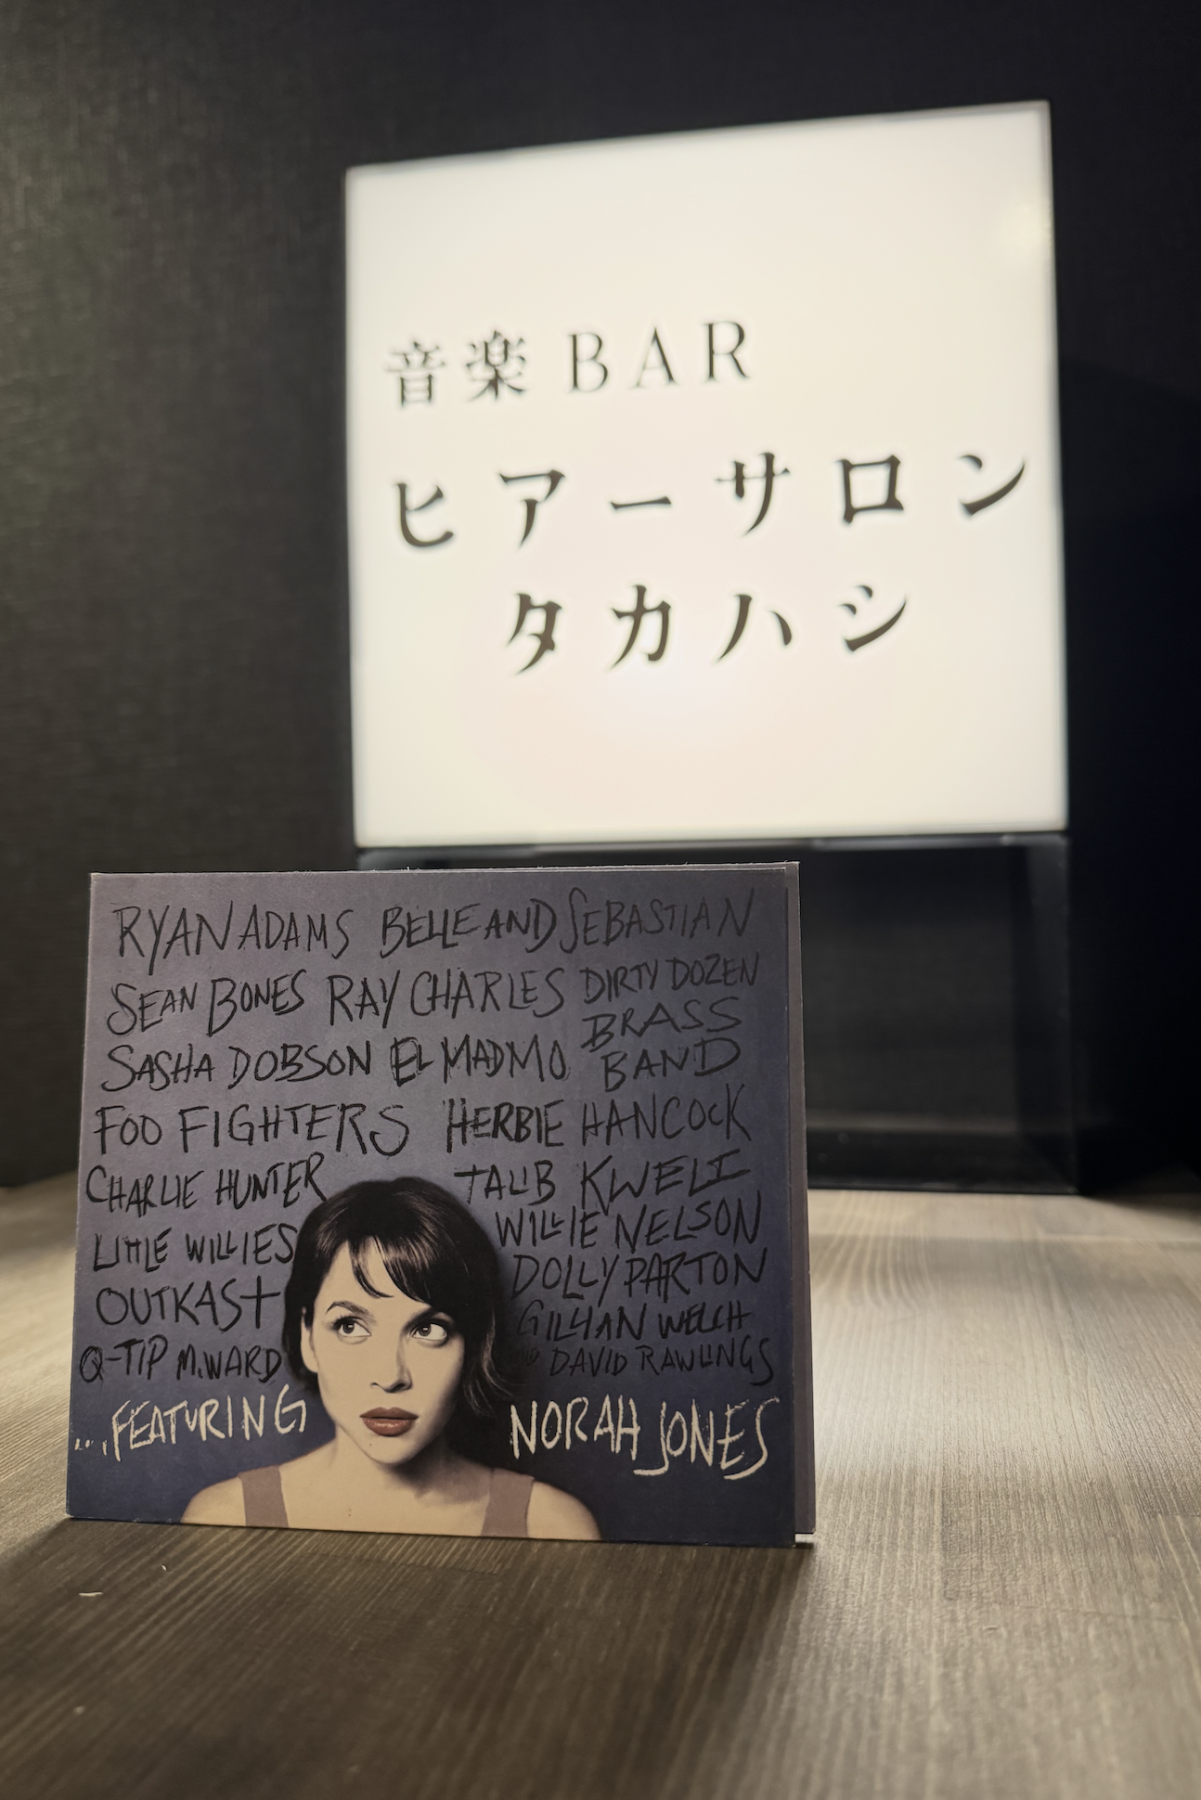 音楽 BAR
ヒアーサロン
タカハシ
RYAN ADAMS BELLE AND SEBASTIAN
SEAN BONES RAY CHARLES DIRTY DOZEN
BRASS
SASHA DOBSON EL MADMO BAND
FOO FIGHTERS HERBIE HANCOCK
CHARLIE HUNTER TALIB KWELI
LITTLE WILLIES WILLIE NELSON
OUTKAST DOLLY PARTON
GILLIAN WELCH
Q-TIP M.WARD AND DAVID RAWLINGS
...FEATURING NORAH JONES